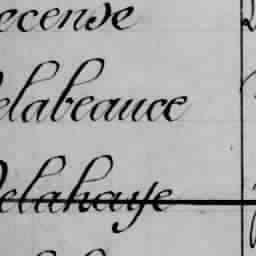 ecense
elabeauce
Delahaye